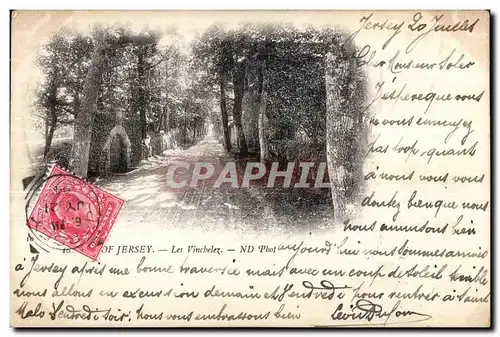 Jersey 20 Juillet
Cher Monsieur Soler
J'espère que vous
ne vous ennuyez
pas trop, quant
à nous vous vous
doutez bien que nous
nous amusons bien
OF JERSEY. — Les Vinchelez. — ND Phot
aujourd'hui nous sommes arrivés
à Jersey après une bonne traversée mais avec un coup de soleil terrible
nous allons en excursion demain et Jeudi, Vendredi pour rentrer à Saint
Malo Vendredi soir, nous vous embrassons bien
CARPEDIEM